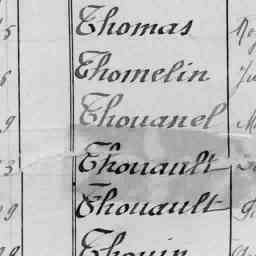 5 Thomas
6 Thomelin
9 Thouanel
3 Thouault
9 Thouault
9 Thouin